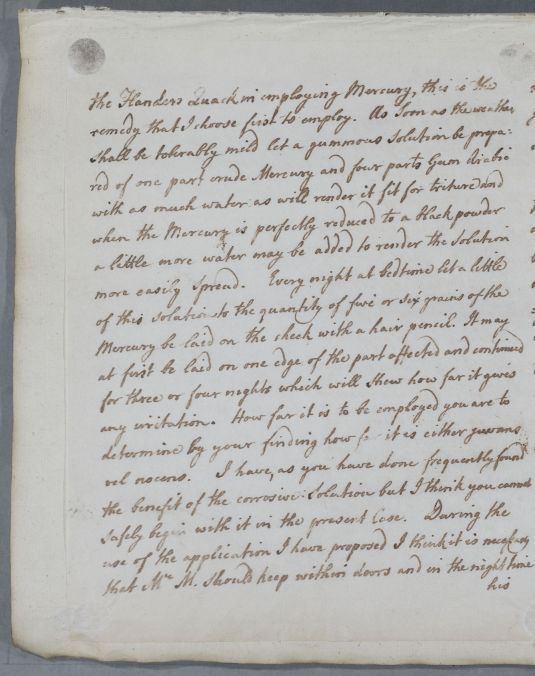 the Flanders Quack in employing Mercury, this is the
remedy that I choose first to employ. As Soon as the weather
Shall be tolerably mild let a gummous Solution be prepa:
red of one part crude Mercury and four parts Gum Arabic
with as much water as will render it fit for triture and
when the Mercury is perfectly reduced to a black powder
a little more water may be added to render the Solution
more easily Spread. Every night at bedtime let a little
of this Solution to the quantity of five or Six grains of the
Mercury be laid on the cheek with a hair pencil. It may
at first be laid on one edge of the part affected and continued
for three or four nights which will Shew how far it gives
any irritation. How far it is to be employed you are to
determine by your finding how it is either juvans
vel nocens. I have, as you have done frequently found
the benefit of the corrosive Solution but I think you cannot
Safely begin with it in the present Case. During the
use of the application I have proposed I think it is necessary
that Mr. M. Should keep within doors and in the night time
his